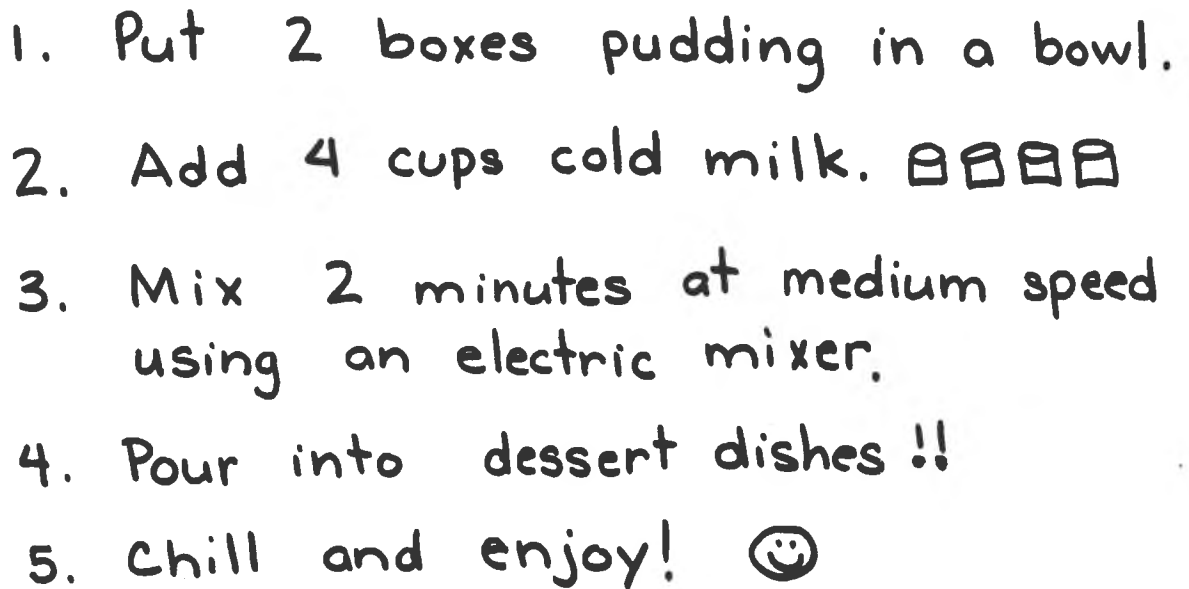 1. Put 2 boxes pudding in a bowl.
2. Add 4 cups cold milk.
3. Mix 2 minutes at medium speed
using an electric mixer.
4. Pour into dessert dishes !!
5. Chill and enjoy! ☺